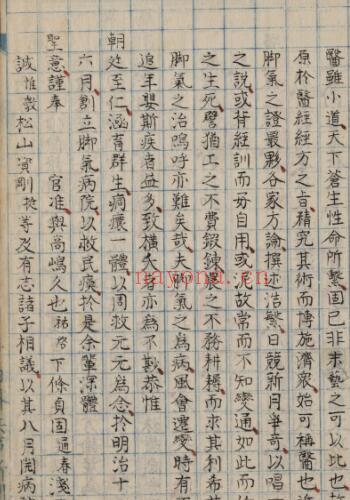 醫雖小道天下蒼生性命所繫固已非末藝之可以比也
原於醫經經方之言精究其術而博施濟衆始可稱醫也近
脚氣之證最夥各家方論撰述浩繁日競新月爭奇以唱
之說或背經訓而好自用或泥故常而不知變通如此而
之生死譬猶工之不費鍛鍊農之不務耕耨而求其利布
脚氣之治嗚呼亦難矣哉夫脚氣之為病風會遷變時有
近年嬰斯疾者益多致橫夭者亦為不尠恭惟
朝廷至仁涵育群生痌瘝一體以周救元元為念於明治十
六月創立脚氣病院以救民瘼於是余輩深體
聖意謹奉 官准與高嶋久也祐 下條貞固通春淺
誠惟敘松山 剛挺等及有志諸子相議以其八月開病
nayona.cn